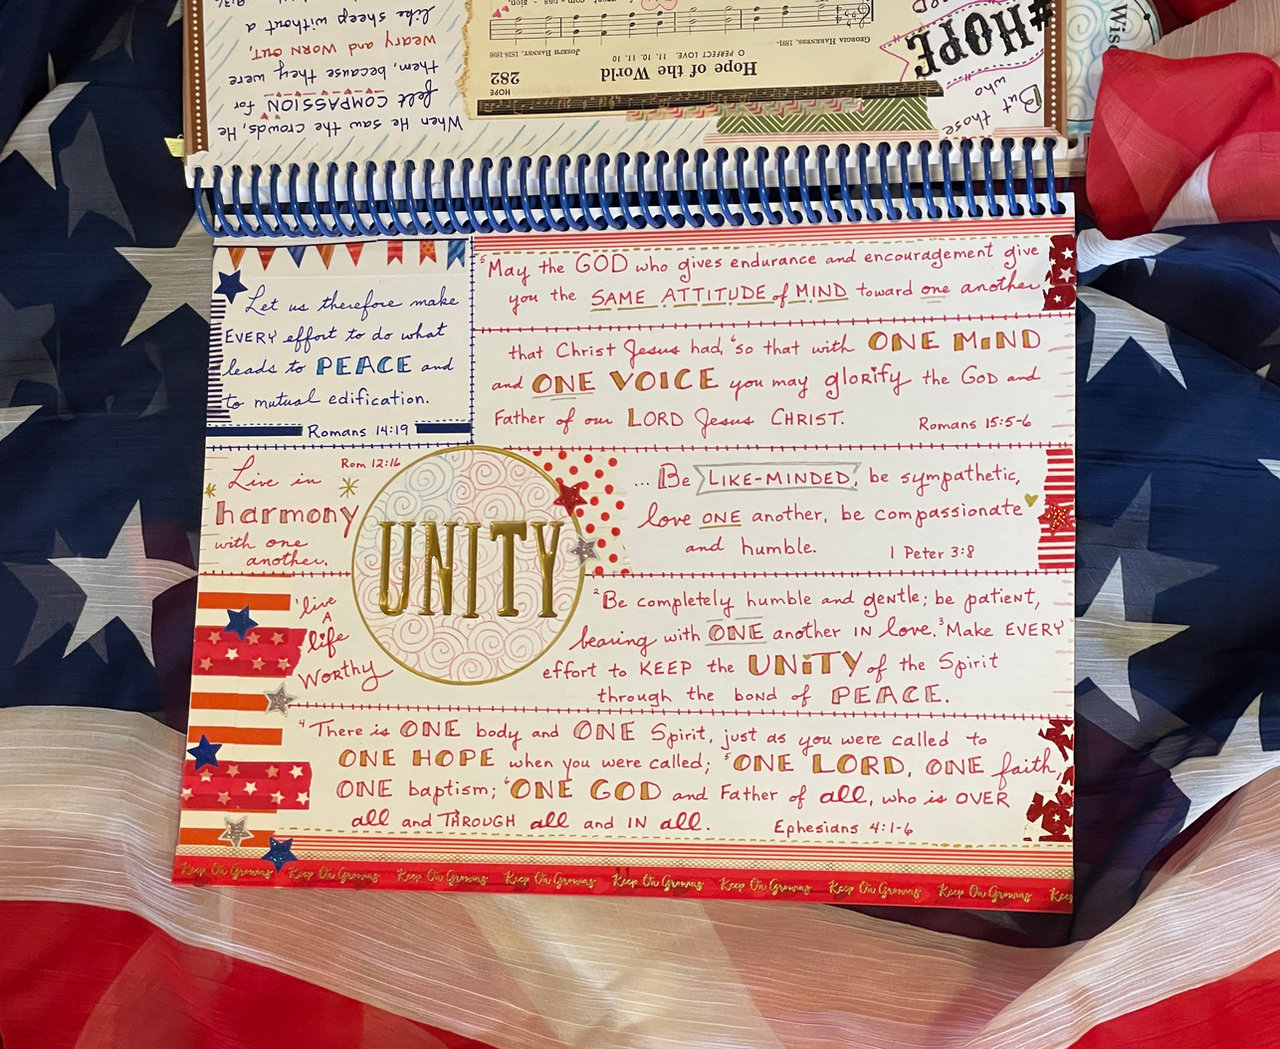 When He saw the crowds, He
felt COMPASSION for
them, because they were
weary and WORN OUT,
like sheep without a
9:36
HOPE
282
Hope of the World
O PERFECT LOVE. 11. 10. 11. 10
GEORGIA HARKNESS, 1891-
JOSEPH BARNBY, 1838-1896
#HOPE
But those
who
Wis
Let us therefore make
EVERY effort to do what
leads to PEACE and
to mutual edification.
Romans 14:19
5 May the GOD who gives endurance and encouragement give
you the SAME ATTITUDE of MIND toward one another
that Christ Jesus had, 6 so that with ONE MIND
and ONE VOICE you may glorify the GOD and
Father of our LORD Jesus CHRIST.
Romans 15:5-6
Rom 12:16
Live in
harmony
with one
another.
UNITY
... Be LIKE-MINDED, be sympathetic,
love ONE another, be compassionate
and humble.
1 Peter 3:8
1 live
A
life
WORTHY
2 Be completely humble and gentle; be patient,
bearing with ONE another IN love. 3 Make EVERY
effort to KEEP the UNITY of the Spirit
through the bond of PEACE.
4 There is ONE body and ONE Spirit, just as you were called to
ONE HOPE when you were called; 5 ONE LORD, ONE faith,
ONE baptism; 6 ONE GOD and Father of all, who is OVER
all and THROUGH all and IN all.
Ephesians 4:1-6
Keep On Growing Keep On Growing Keep On Growing Keep On Growing Keep On Growing Keep On Growing Keep On Growing Keep On Growing Keep